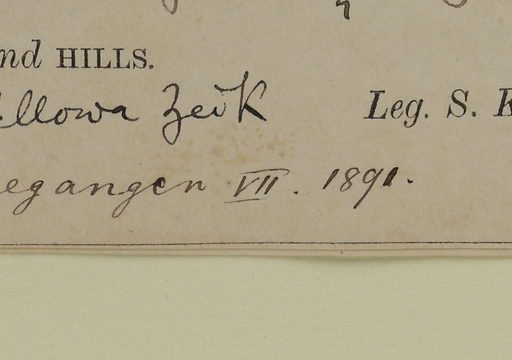 nd HILLS.
ellowa Zeik Leg. S. K
egangen VII. 1891.